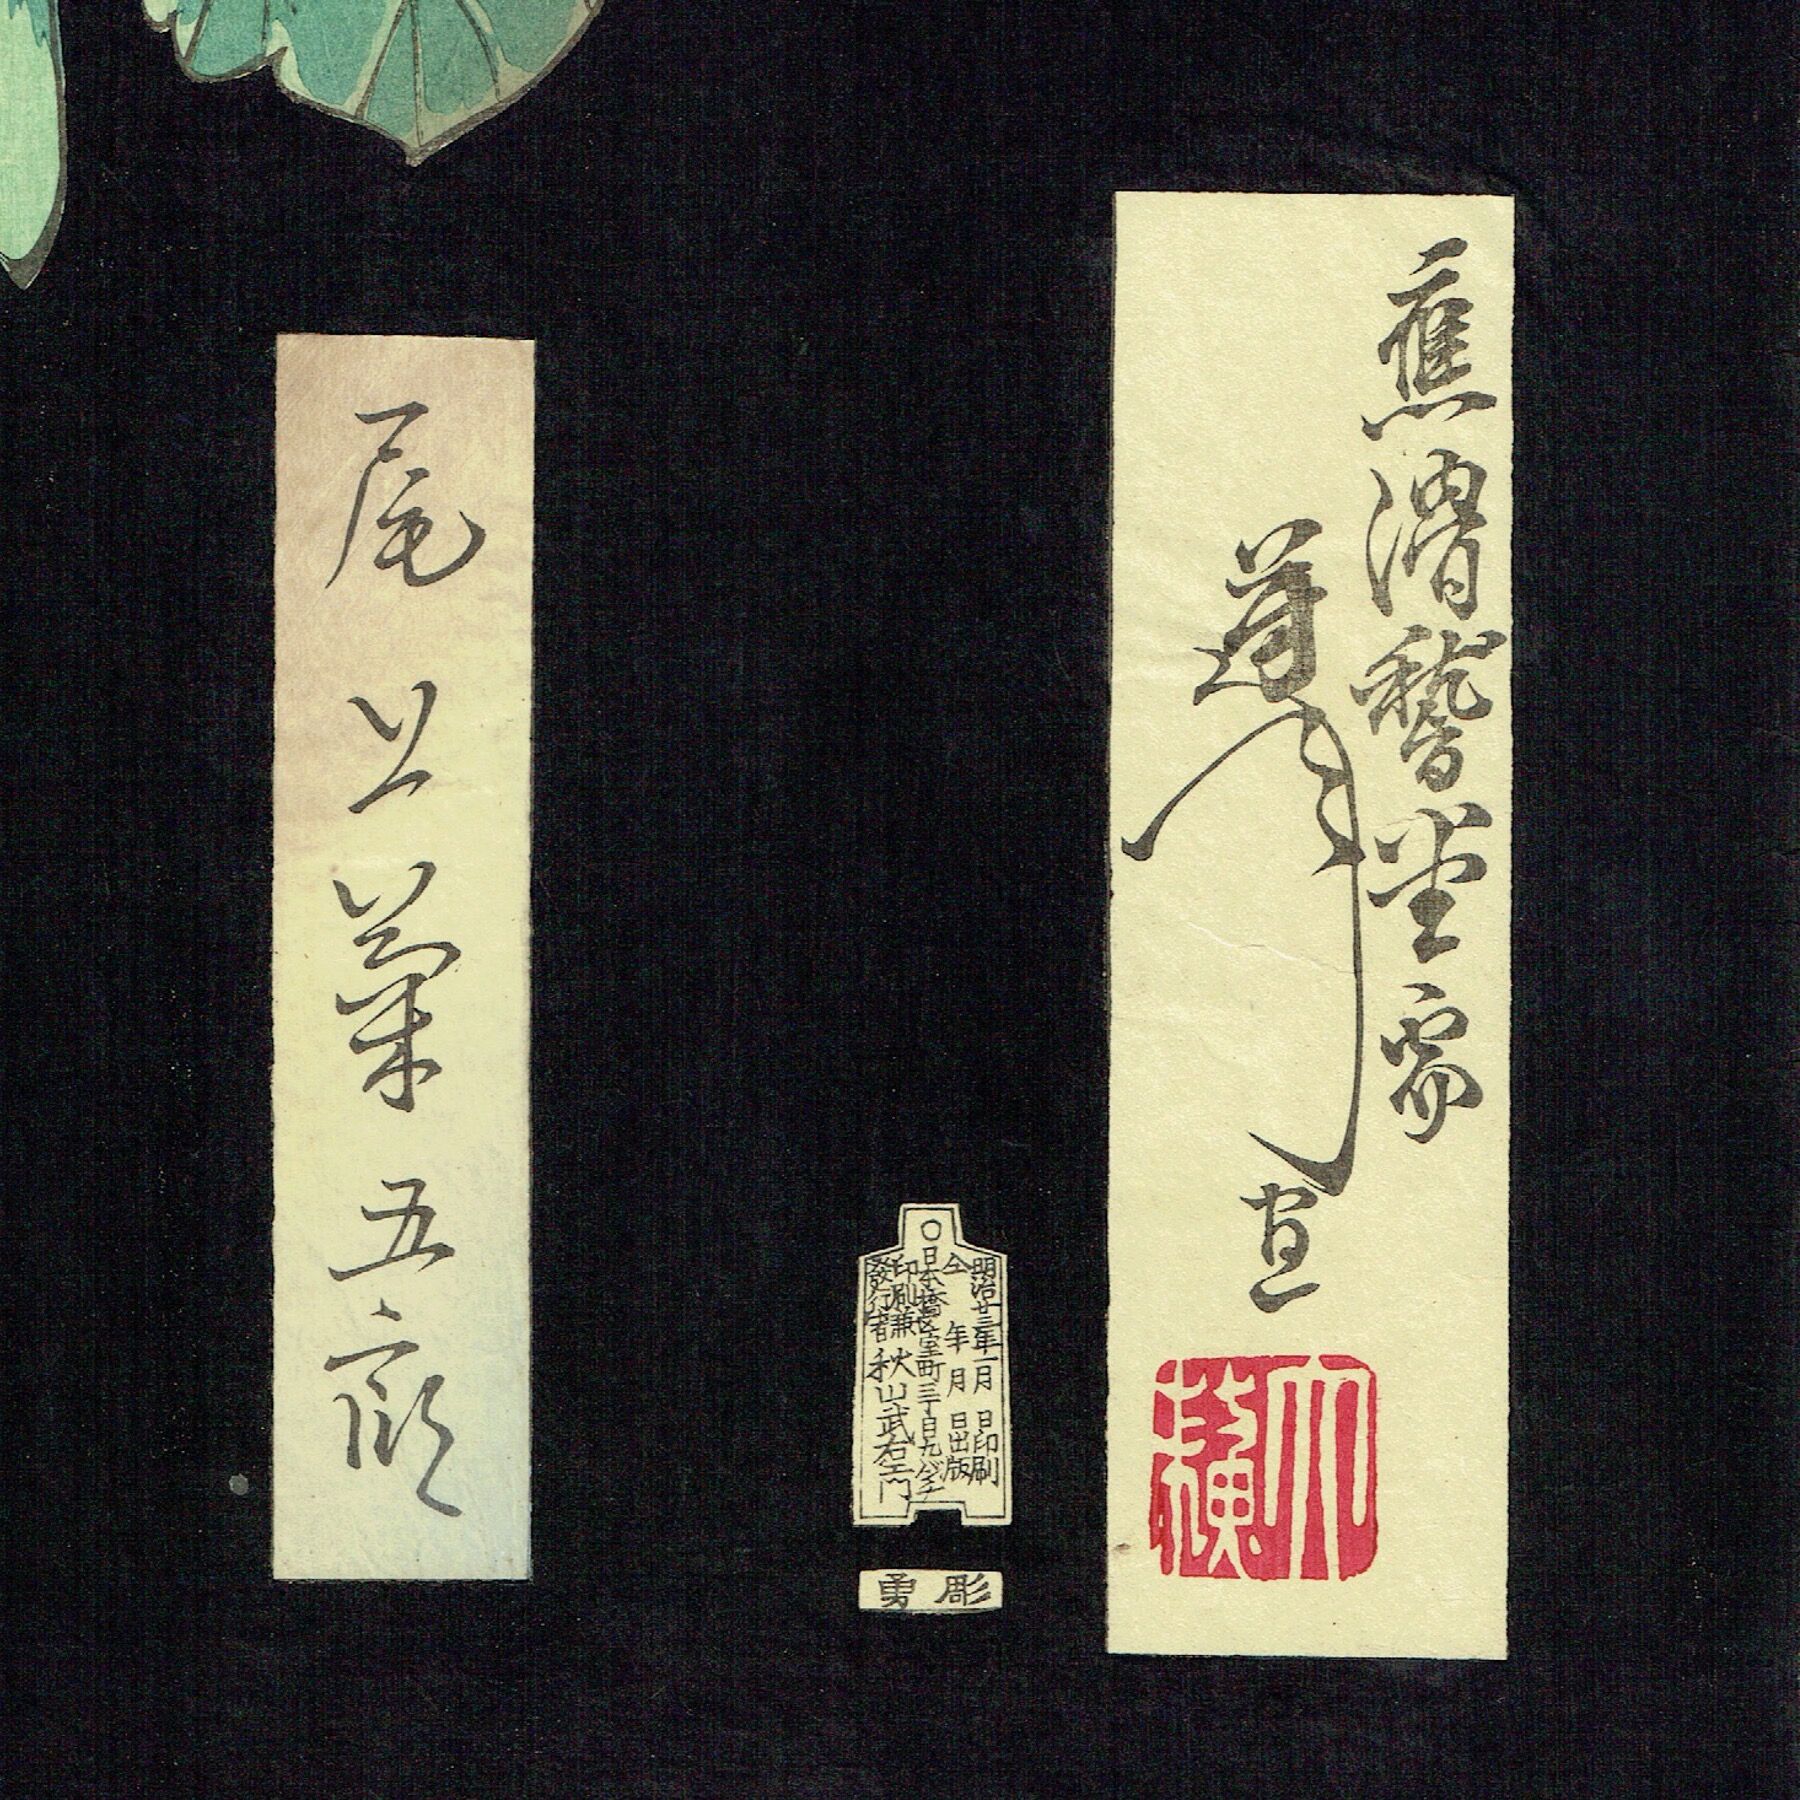 應滑稽堂需
芳年画
大蘇
明治廿三年一月 日印刷
仝 年 月 日出版
日本橋区室町三丁目九バンチ
印刷兼
發行者 秋山武右エ門
彫勇
尾上菊五郎